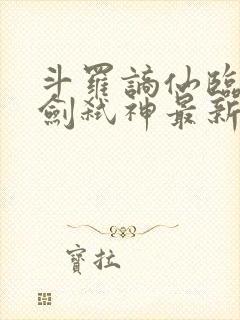 斗羅謫仙臨
劍弒神最新
寶拉